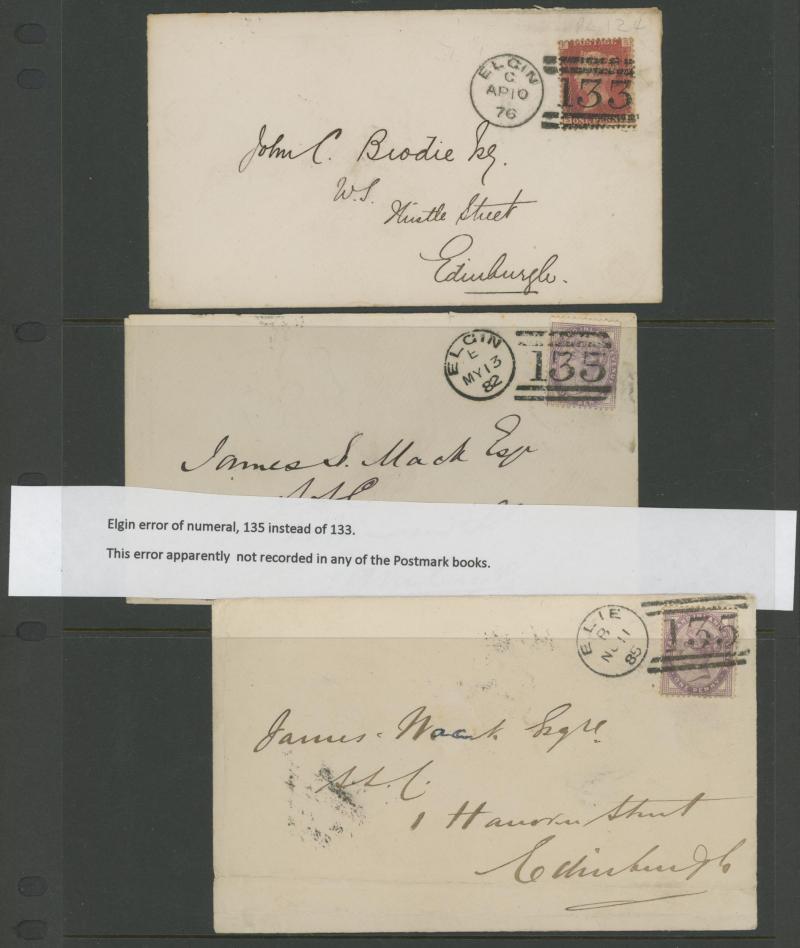 ELGIN
C
AP10
76
133
John C. Brodie Esq.
W.S.
Thistle Street
Edinburgh.
ELGIN
E
MY13
82
135
James S. Mack Esq
Elgin error of numeral, 135 instead of 133.
This error apparently not recorded in any of the Postmark books.
ELIE
B
NO11
85
135
ONE PENNY
James Mack Esqre
S.S.C.
1 Hanover Street
Edinburgh